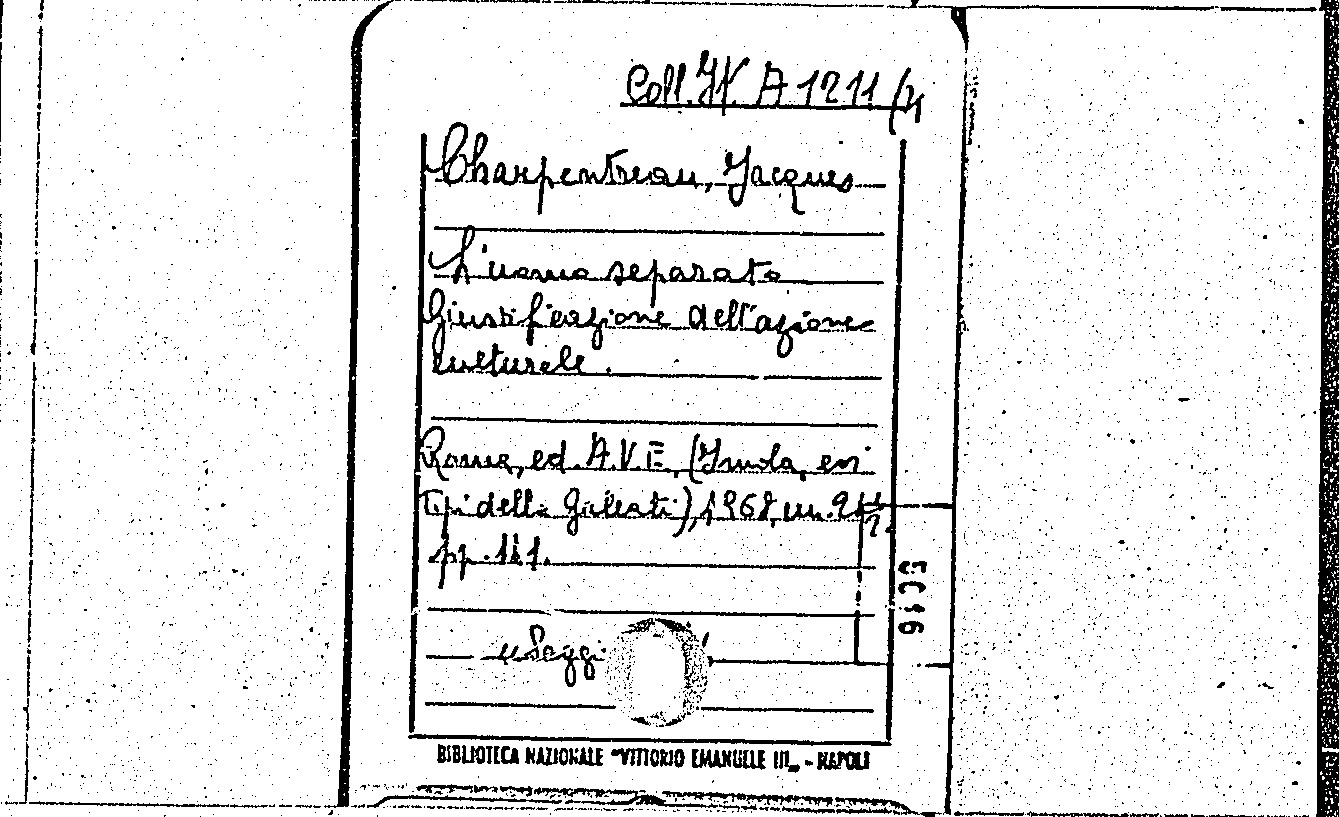 Coll. IV. A 1211/4
Charpentreau, Jacques
L'uomo separato
Giustificazione dell'azione
culturale.
Roma, ed. A.V.E. (Imola, coi
Tipi della Galeati), 1968, in
pp. 141.
5016
"Saggi
BIBLIOTECA NAZIONALE "VITTORIO EMANUELE III„ - NAPOLI